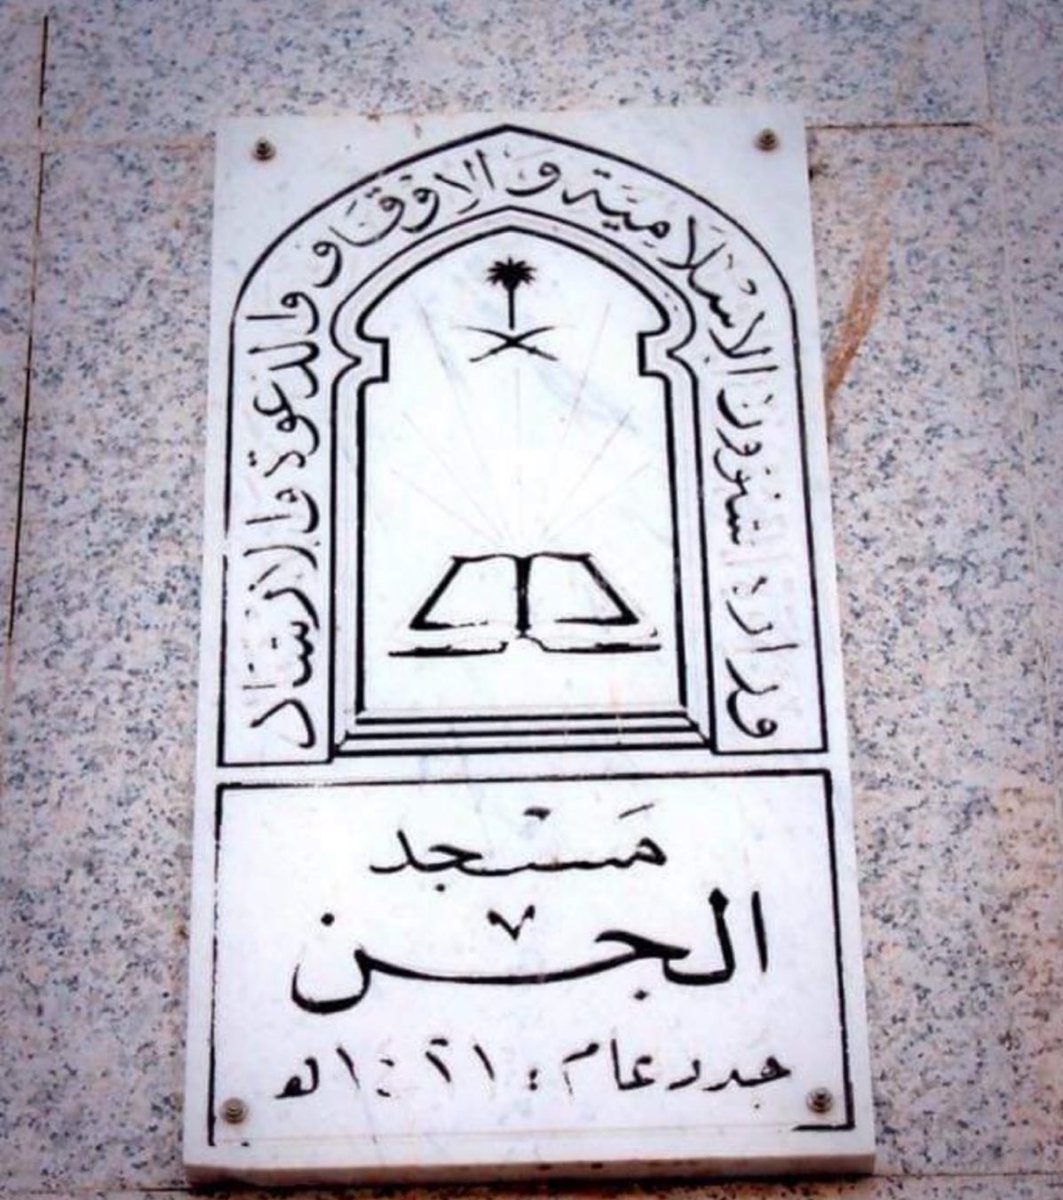 وزارة الشئون الإسلامية والأوقاف والدعوة والإرشاد
مسجد
الجن
جدد عام :